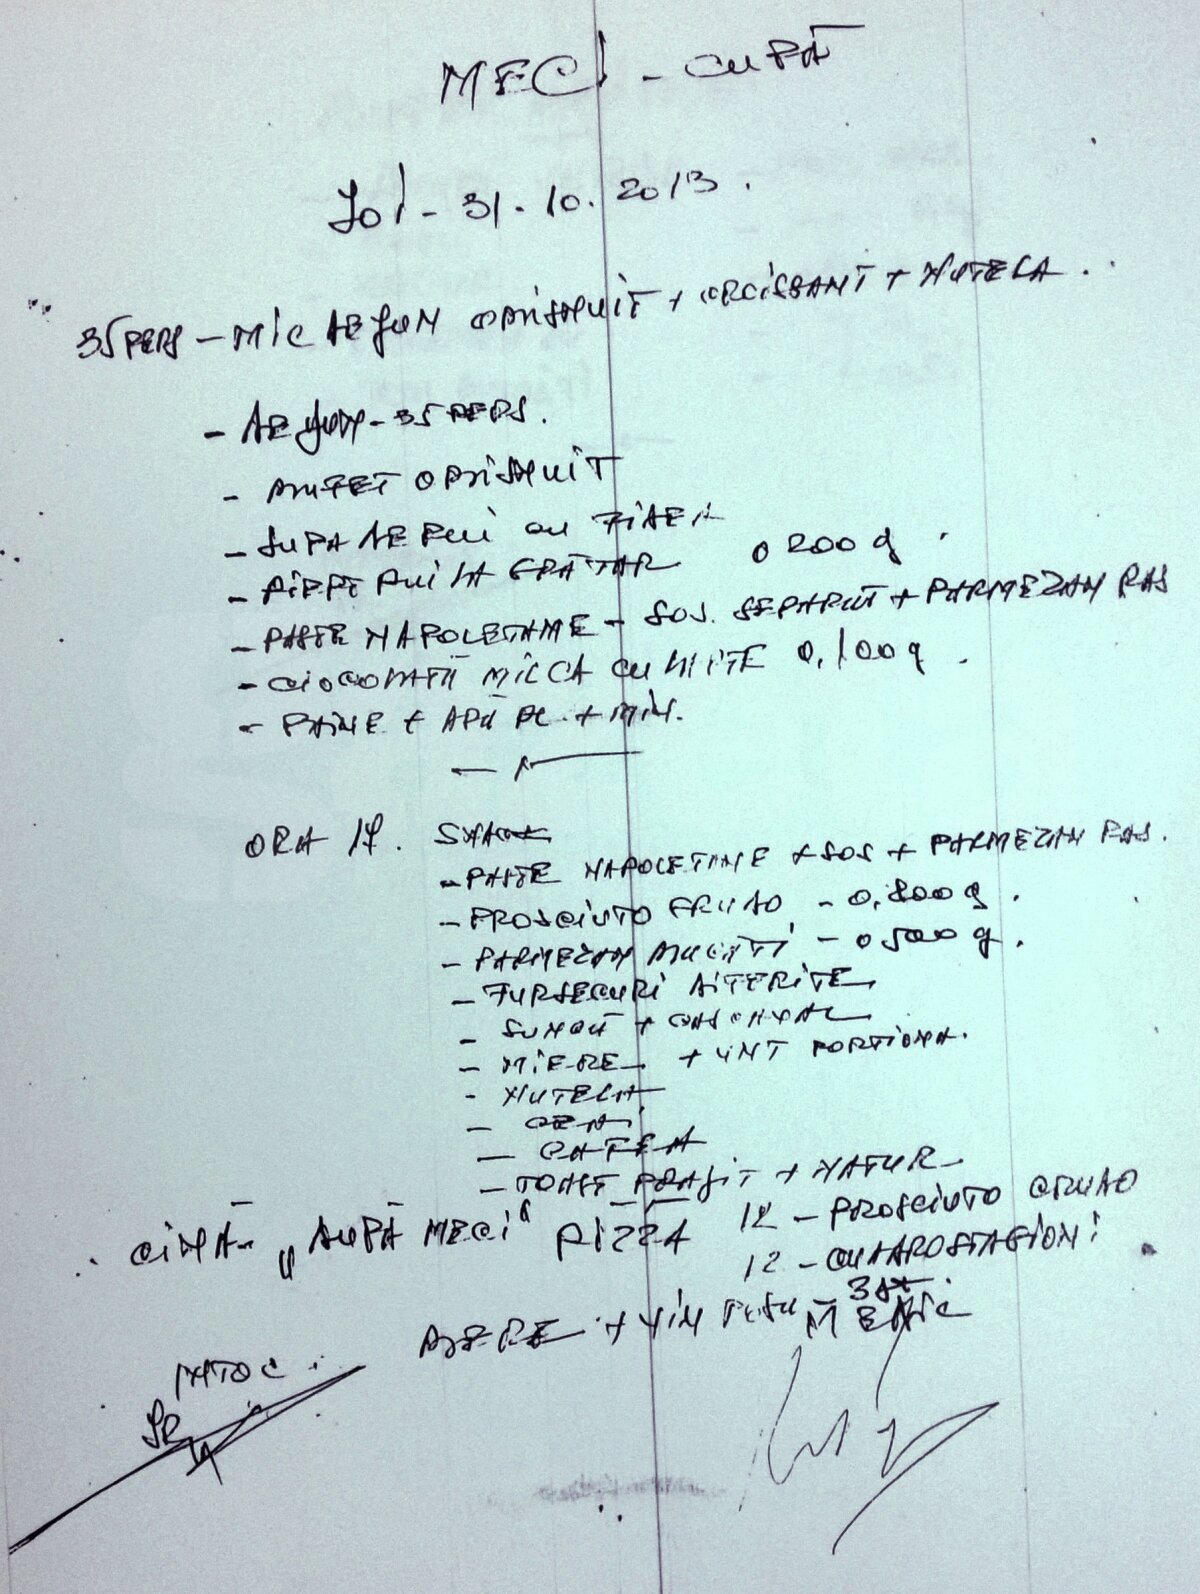 MECI - CUPĂ
JOI - 31.10.2013.
35 PERS - MIC DEJUN OBISNUIT + CROISSANT + NUTELA.
- DEJUN - 35 PERS.
- BUFET OBISNUIT
- SUPA DE PUI CU FIDEA
- PIEPT PUI LA GRATAR 0 200 g.
- PASTE NAPOLETANE - SOS. SEPARAT + PARMEZAN RAS
- CIOCOLATA MILCA CU LAPTE 0,100 g.
- PAINE + APA PL. + MIN.
ORA 17. SNACK
- PASTE NAPOLETANE + SOS + PARMEZAN RAS.
- PROSCIUTO CRUDO - 0,800 g.
- PARMEZAN BUCATI - 0 500 g.
- FURSECURI DIFERITE
- SUNCA + CASCAVAL
- MIERE + UNT PORTIONA.
- NUTELA
- CEAI
- CAFEA
- TOAST PRAJIT + NATUR
CINĂ - „DUPĂ MECI“ PIZZA 12 - PROSCIUTO CRUDO
12 - QUATROSTAGIONI
BERE + VIN ROSU -
MEDIC